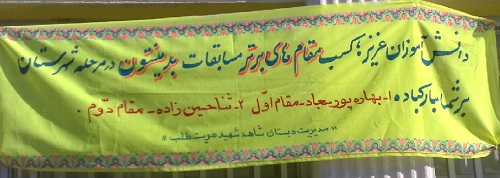 دانش آموزان عزیز؛ کسب مقام های برتر مسابقات بدمینتون در مرحله شهرستان
بر شما مبارکباد ۱- بهاره پورسجاد - مقام اوّل ۲- ثنا حسین زاده - مقام دوّم.
«مدیریت دبستان شاهد شهید هویت طلب»